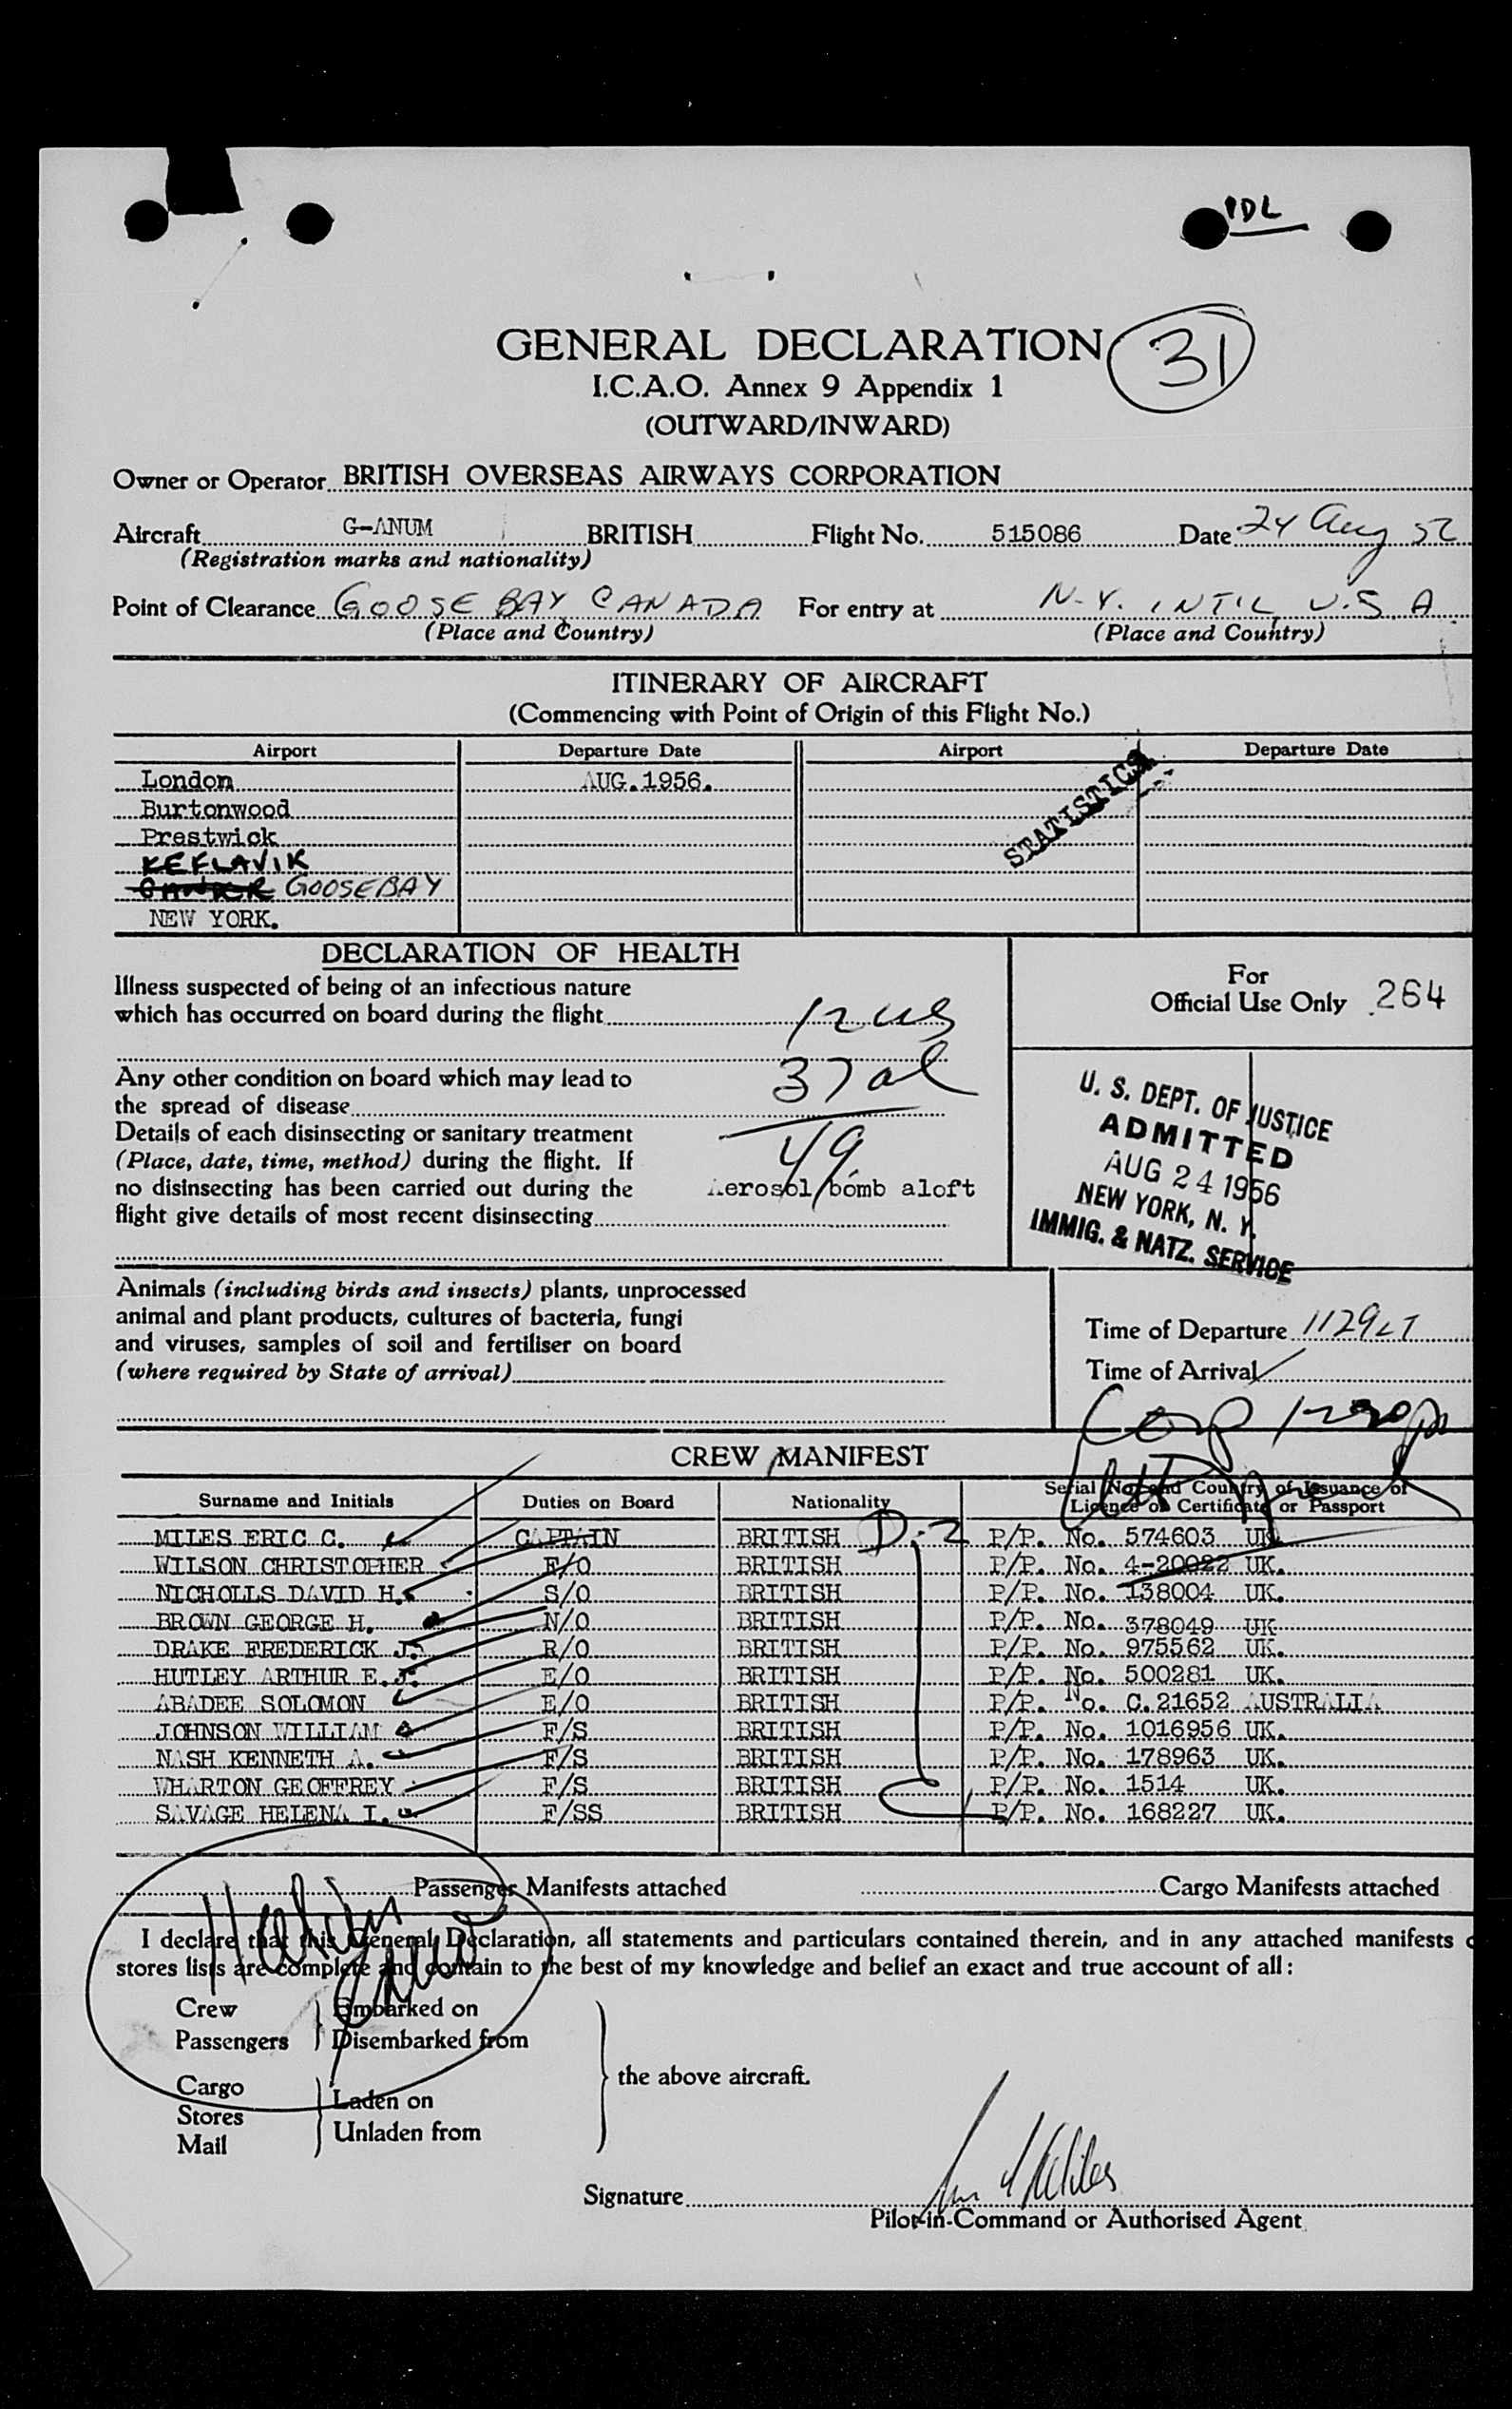 IDL
GENERAL DECLARATION
31
I.C.A.O. Annex 9 Appendix 1
(OUTWARD/INWARD)
Owner or Operator BRITISH OVERSEAS AIRWAYS CORPORATION
Aircraft G-ANUM BRITISH Flight No. 515086 Date 24 Aug
(Registration marks and nationality)
Point of Clearance GOOSE BAY CANADA For entry at N.Y. INT'L U.S.A
(Place and Country) (Place and Country)
ITINERARY OF AIRCRAFT
(Commencing with Point of Origin of this Flight No.)
Airport Departure Date Airport Departure Date
London AUG.1956.
Burtonwood
Prestwick
STATISTICS
KEFLAVIK
GOOSEBAY
NEW YORK.
DECLARATION OF HEALTH
For
Official Use Only 264
Illness suspected of being of an infectious nature
which has occurred on board during the flight 12 us
Any other condition on board which may lead to 37 al
the spread of disease
Details of each disinsecting or sanitary treatment 49
(Place, date, time, method) during the flight. If
no disinsecting has been carried out during the Aerosol bomb aloft
flight give details of most recent disinsecting
U. S. DEPT. OF JUSTICE
ADMITTED
AUG 24 1956
NEW YORK, N. Y.
IMMIG. & NATZ. SERVICE
Animals (including birds and insects) plants, unprocessed
animal and plant products, cultures of bacteria, fungi
and viruses, samples of soil and fertiliser on board
(where required by State of arrival)
Time of Departure 1129LT
Time of Arrival
CREW MANIFEST
Surname and Initials Duties on Board Nationality Serial No. and Country of Issuance of
Licence or Certificate or Passport
MILES ERIC C. CAPTAIN BRITISH D-2 P/P. No. 574603 UK.
WILSON CHRISTOPHER F/O BRITISH P/P. No. 4-20022 UK.
NICHOLLS DAVID H. S/O BRITISH P/P. No. 138004 UK.
BROWN GEORGE H. N/O BRITISH P/P. No. 378049 UK
DRAKE FREDERICK J. R/O BRITISH P/P. No. 975562 UK.
HUTLEY ARTHUR E.J. E/O BRITISH P/P. No. 500281 UK.
ABADEE SOLOMON E/O BRITISH P/P. No. C.21652 AUSTRALIA
JOHNSON WILLIAM F/S BRITISH P/P. No. 1016956 UK.
NASH KENNETH A. F/S BRITISH P/P. No. 178963 UK.
WHARTON GEOFFREY F/S BRITISH P/P. No. 1514 UK.
SAVAGE HELENA I. F/SS BRITISH P/P. No. 168227 UK.
Passenger Manifests attached Cargo Manifests attached
I declare that this General Declaration, all statements and particulars contained therein, and in any attached manifests
stores lists are complete and contain to the best of my knowledge and belief an exact and true account of all:
Crew
Passengers
Embarked on
Disembarked from
Cargo
Stores
Mail
Laden on
Unladen from
the above aircraft.
Signature
Pilot-in-Command or Authorised Agent